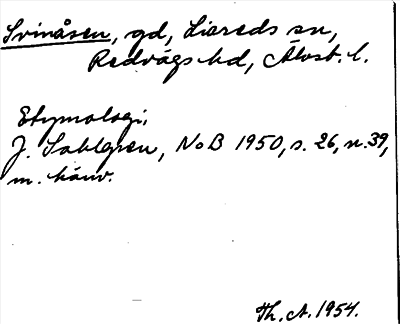 Svinåsen, gd, Liareds sn,
Redvägs hd, Älvsb. l.
Etymologi.
J. Sahlgren, NoB 1950, s. 26, n. 39,
m. hänv.
Th. A. 1954.